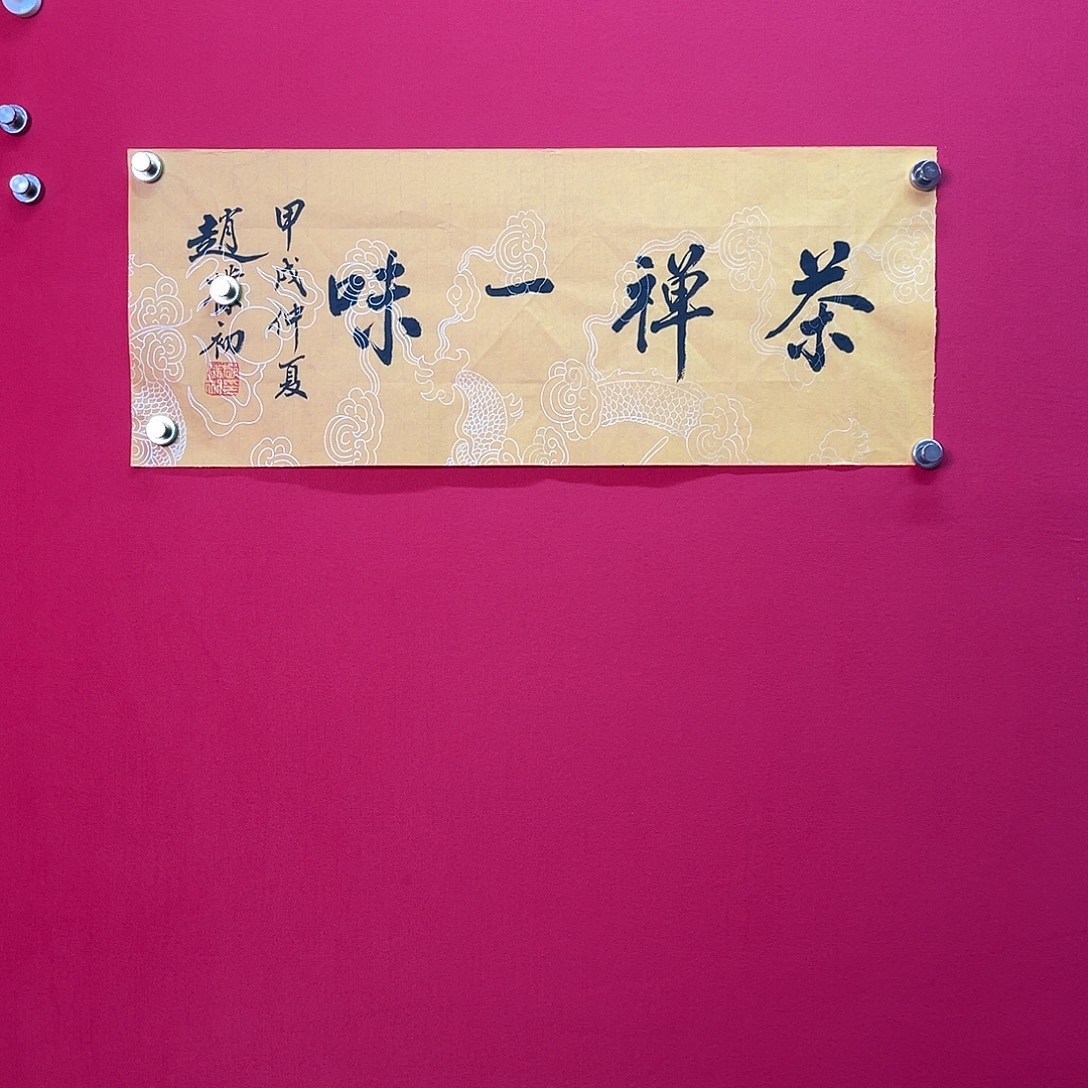 茶禅一味
甲戌仲夏
趙初